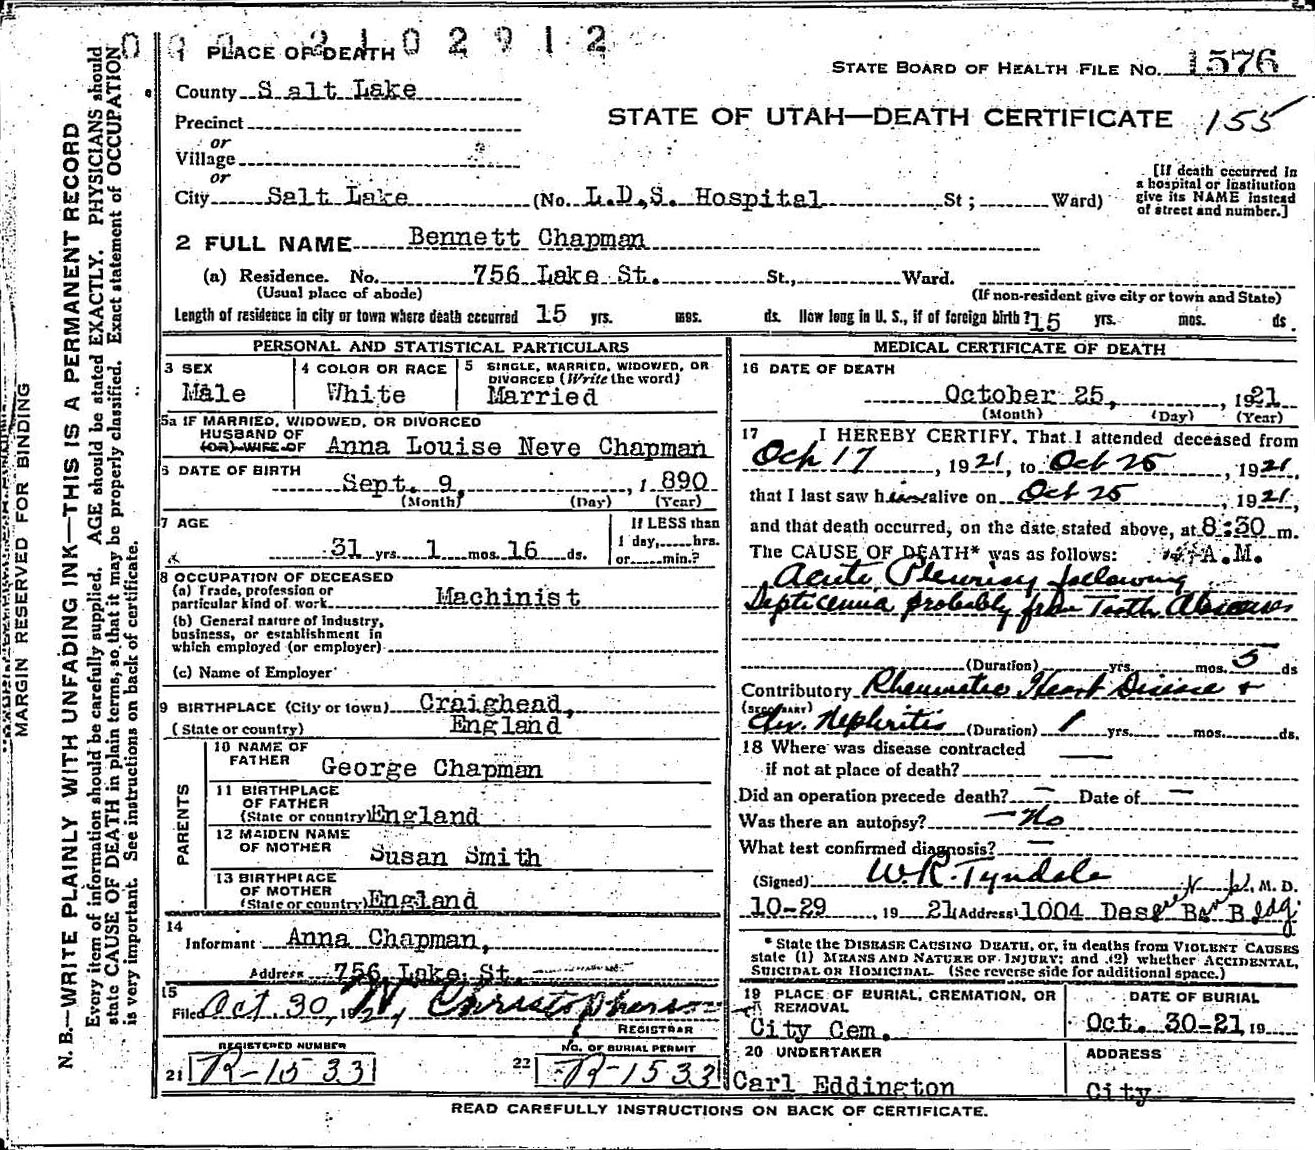 0 0 0 2 1 0 2 9 1 2
1 PLACE OF DEATH
STATE BOARD OF HEALTH FILE No. 1576
County Salt Lake
STATE OF UTAH—DEATH CERTIFICATE 155
Precinct
or
Village
or
City Salt Lake (No. L.D.S. Hospital St; Ward)
[If death occurred in
a hospital or institution
give its NAME instead
of street and number.]
2 FULL NAME Bennett Chapman
(a) Residence. No. 756 Lake St. St., Ward.
(Usual place of abode) (If non-resident give city or town and State)
Length of residence in city or town where death occurred 15 yrs. mos. ds. How long in U. S., if of foreign birth? 15 yrs. mos. ds.
PERSONAL AND STATISTICAL PARTICULARS
3 SEX
Male
4 COLOR OR RACE
White
5 SINGLE, MARRIED, WIDOWED, OR
DIVORCED (Write the word)
Married
5a IF MARRIED, WIDOWED, OR DIVORCED
HUSBAND OF
(OR) WIFE OF Anna Louise Neve Chapman
6 DATE OF BIRTH
Sept. 9, , 1 890
(Month) (Day) (Year)
7 AGE
31 yrs. 1 mos. 16 ds.
If LESS than
1 day, hrs.
or min.?
8 OCCUPATION OF DECEASED
(a) Trade, profession or
particular kind of work Machinist
(b) General nature of industry,
business, or establishment in
which employed (or employer)
(c) Name of Employer
9 BIRTHPLACE (City or town) Craighead,
(State or country) England
PARENTS
10 NAME OF
FATHER George Chapman
11 BIRTHPLACE
OF FATHER
(State or country) England
12 MAIDEN NAME
OF MOTHER Susan Smith
13 BIRTHPLACE
OF MOTHER
(State or country) England
14
Informant Anna Chapman,
Address 756 Lake St.
15
Filed Oct. 30, 1921 W Christopherson
REGISTRAR
REGISTERED NUMBER
21 R-1533
No. OF BURIAL PERMIT
22 R-1533
MEDICAL CERTIFICATE OF DEATH
16 DATE OF DEATH
October 25, , 1921
(Month) (Day) (Year)
17 I HEREBY CERTIFY, That I attended deceased from
Oct 17 , 1921, to Oct 25 , 1921,
that I last saw him alive on Oct 25 , 1921,
and that death occurred, on the date stated above, at 8:30 m.
The CAUSE OF DEATH* was as follows: A.M.
Acute Pleurisy following
Septicemia probably from Tooth Abscesses
(Duration) yrs. mos. 5 ds
Contributory Rheumatic Heart Disease +
(SECONDARY)
Chr. Nephritis (Duration) 1 yrs. mos. ds.
18 Where was disease contracted
if not at place of death?
Did an operation precede death? — Date of —
Was there an autopsy? — No
What test confirmed diagnosis? —
(Signed) W.R. Tyndale , M. D.
10-29 , 1921 (Address) 1004 Deseret Bank Bldg.
* State the DISEASE CAUSING DEATH, or, in deaths from VIOLENT CAUSES
state (1) MEANS AND NATURE OF INJURY; and (2) whether ACCIDENTAL,
SUICIDAL OR HOMICIDAL. (See reverse side for additional space.)
19 PLACE OF BURIAL, CREMATION, OR
REMOVAL
City Cem.
DATE OF BURIAL
Oct. 30-21, 19
20 UNDERTAKER
Carl Eddington
ADDRESS
City
READ CAREFULLY INSTRUCTIONS ON BACK OF CERTIFICATE.
MARGIN RESERVED FOR BINDING
N. B.—WRITE PLAINLY WITH UNFADING INK—THIS IS A PERMANENT RECORD
Every item of information should be carefully supplied. AGE should be stated EXACTLY. PHYSICIANS should
state CAUSE OF DEATH in plain terms, so that it may be properly classified. Exact statement of OCCUPATION
is very important. See instructions on back of certificate.